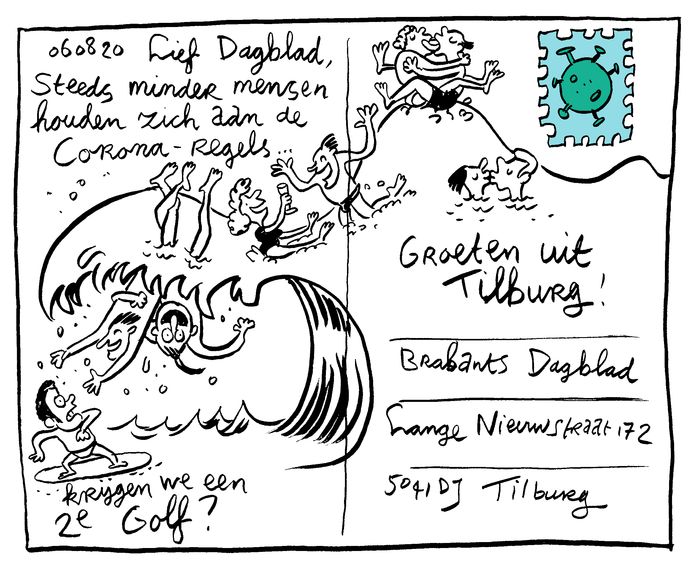 060820 Lief Dagblad,
Steeds minder mensen
houden zich aan de
Corona-regels...
krijgen we een
2e Golf?
Groeten uit
Tilburg!
Brabants Dagblad
Lange Nieuwstraat 172
5041DJ Tilburg